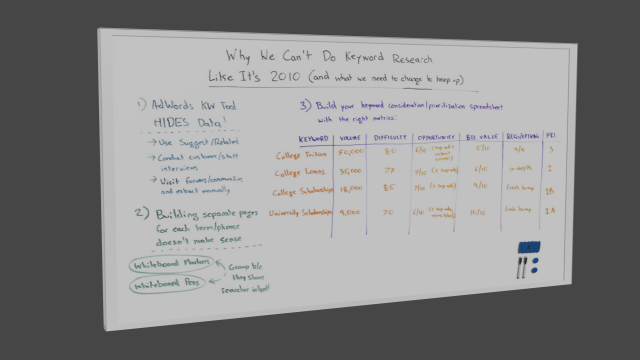 Why We Can't Do Keyword Research
Like It's 2010 (and what we need to change to keep up)
1) AdWords KW Tool
HIDES Data!
→ Use Suggest/Related
→ Conduct customer/staff
interviews
→ Visit forums/communities
and extract manually
2) Building separate pages
for each term/phrase
doesn't make sense
Whiteboard Markers
Whiteboard Pens
Group b/c
they share
searcher intent
3) Build your keyword consideration/prioritization spreadsheet
with the right metrics:
KEYWORD VOLUME DIFFICULTY OPPORTUNITY BIZ VALUE PRI
College Tuition 50,000 80 6/10 5/10 n/a 3
College Loans 35,000 77 7/10 6/10 in-depth 2
College Scholarships 18,000 85 7/10 9/10 1B
University Scholarships 9,000 70 6/10 10/10 1A